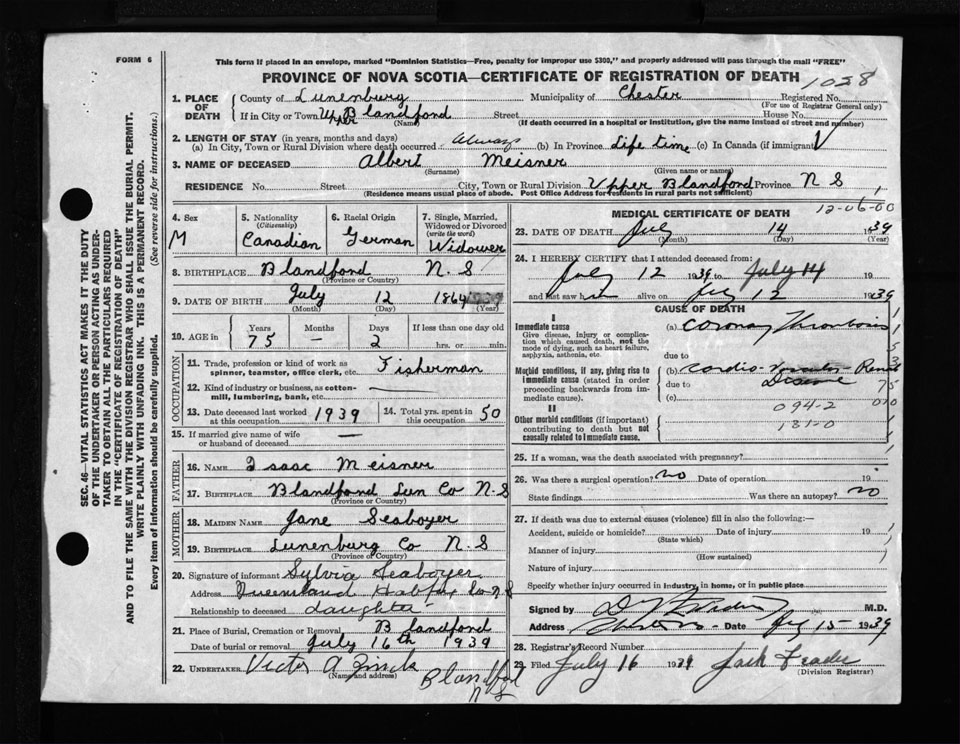 FORM 6
This form if placed in an envelope, marked "Dominion Statistics—Free, penalty for improper use $300," and properly addressed will pass through the mail "FREE"
PROVINCE OF NOVA SCOTIA—CERTIFICATE OF REGISTRATION OF DEATH
1028
SEC. 46—VITAL STATISTICS ACT MAKES IT THE DUTY
OF THE UNDERTAKER OR PERSON ACTING AS UNDER-
TAKER TO OBTAIN ALL THE PARTICULARS REQUIRED
IN THE "CERTIFICATE OF REGISTRATION OF DEATH"
AND TO FILE THE SAME WITH THE DIVISION REGISTRAR WHO SHALL ISSUE THE BURIAL PERMIT.
WRITE PLAINLY WITH UNFADING INK. THIS IS A PERMANENT RECORD.
Every item of information should be carefully supplied. (See reverse side for instructions.)
1. PLACE OF DEATH County of Lunenburg Municipality of Chester Registered No.
(For use of Registrar General only)
If in City or Town Upper Blandford Street House No.
(Name) (If death occurred in a hospital or institution, give the name instead of street and number)
2. LENGTH OF STAY (in years, months and days)
(a) In City, Town or Rural Division where death occurred Always (b) In Province Life time (c) In Canada (if immigrant)
3. NAME OF DECEASED Albert Meisner
(Surname) (Given name or names)
RESIDENCE No. Street City, Town or Rural Division Upper Blandford Province N S
(Residence means usual place of abode. Post Office Address for residents in rural parts not sufficient)
4. Sex M
5. Nationality (Citizenship) Canadian
6. Racial Origin German
7. Single, Married, Widowed or Divorced (write the word) Widower
8. BIRTHPLACE Blandford N.S
(Province or Country)
9. DATE OF BIRTH July 12 1864
(Month) (Day) (Year)
10. AGE in Years Months Days If less than one day old
75 — 2 hrs. or min.
OCCUPATION
11. Trade, profession or kind of work as spinner, teamster, office clerk, etc. Fisherman
12. Kind of industry or business, as cotton-mill, lumbering, bank, etc. —
13. Date deceased last worked at this occupation 1939 14. Total yrs. spent in this occupation 50
15. If married give name of wife or husband of deceased —
FATHER
16. NAME Isaac Meisner
17. BIRTHPLACE Blandford Lun Co N.S
(Province or Country)
MOTHER
18. MAIDEN NAME Jane Seaboyer
19. BIRTHPLACE Lunenburg Co N.S
(Province or Country)
20. Signature of informant Sylvia Seaboyer
Address Queensland Halifax Co N S
Relationship to deceased daughter
21. Place of Burial, Cremation or Removal Blandford
Date of burial or removal July 16th 1939
22. UNDERTAKER Victor A Zinck
(Name and address) Blandford
N S
MEDICAL CERTIFICATE OF DEATH
12-06-00
23. DATE OF DEATH July 14 1939
(Month) (Day) (Year)
24. I HEREBY CERTIFY that I attended deceased from:
July 12 1939 to July 14 19
and last saw h alive on July 12 1939
CAUSE OF DEATH
I
Immediate cause (a) Coronary Thrombosis
Give disease, injury or complication which caused death, not the mode of dying, such as heart failure, asphyxia, asthenia, etc.
due to
Morbid conditions, if any, giving rise to immediate cause (stated in order proceeding backwards from immediate cause). (b) Cardio-Vascular-Renal
due to Disease
(c)
II
Other morbid conditions (if important) contributing to death but not causally related to immediate cause.
094-2
131-0
25. If a woman, was the death associated with pregnancy?
26. Was there a surgical operation? no Date of operation
State findings Was there an autopsy? no
27. If death was due to external causes (violence) fill in also the following:—
Accident, suicide or homicide? Date of injury 19
(State which)
Manner of injury
(How sustained)
Nature of injury
Specify whether injury occurred in industry, in home, or in public place
Signed by M.D.
Address Chester Date July 15 1939
28. Registrar's Record Number
29. Filed July 16 1939 Jack
(Division Registrar)